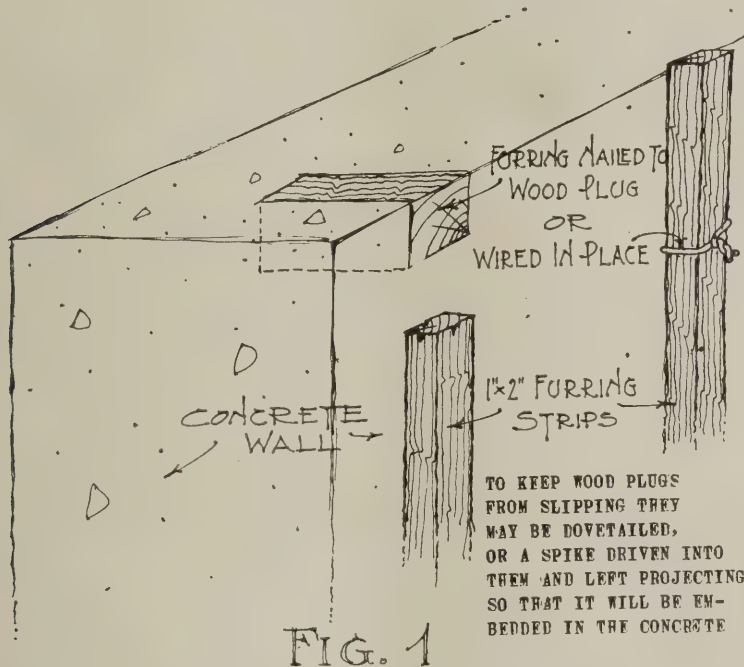 FURRING NAILED TO
WOOD PLUG
OR
WIRED IN PLACE
1"x2" FURRING
STRIPS
CONCRETE
WALL
TO KEEP WOOD PLUGS
FROM SLIPPING THEY
MAY BE DOVETAILED,
OR A SPIKE DRIVEN INTO
THEM AND LEFT PROJECTING
SO THAT IT WILL BE EM-
BEDDED IN THE CONCRETE
FIG. 1